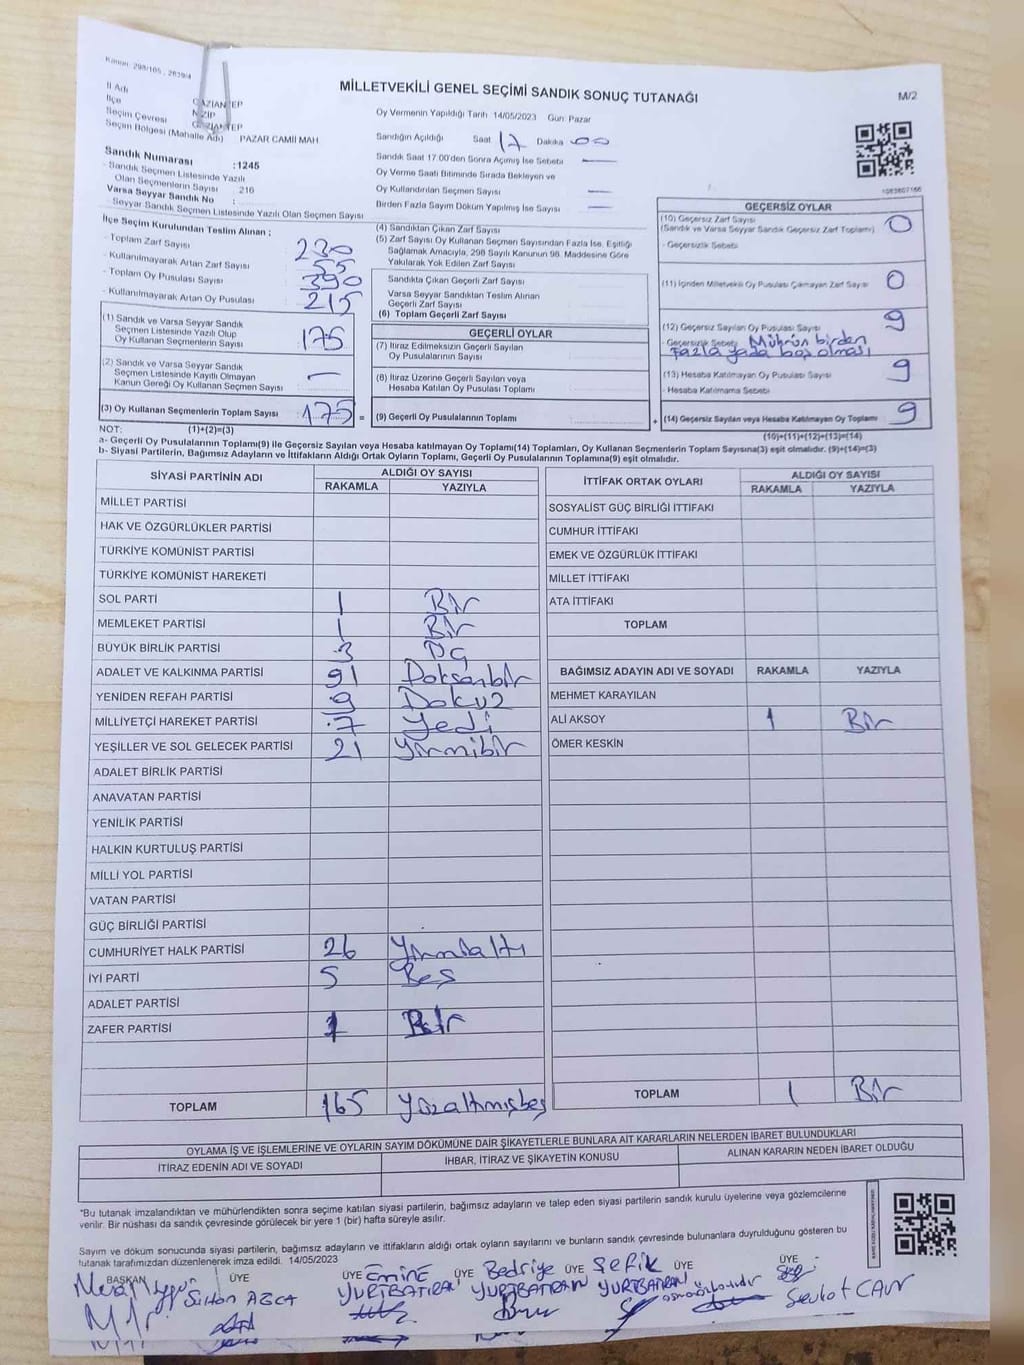 Kanun: 298/105, 2839/4
MİLLETVEKİLİ GENEL SEÇİMİ SANDIK SONUÇ TUTANAĞI
M/2
İl Adı GAZİANTEP
İlçe NİZİP
Seçim Çevresi GAZİANTEP
Seçim Bölgesi (Mahalle Adı) PAZAR CAMİİ MAH
Sandık Numarası :1245
- Sandık Seçmen Listesinde Yazılı
Olan Seçmenlerin Sayısı : 216
Varsa Seyyar Sandık No :
- Seyyar Sandık Seçmen Listesinde Yazılı Olan Seçmen Sayısı
Oy Vermenin Yapıldığı Tarih 14/05/2023 Gün: Pazar
Sandığın Açıldığı Saat 17 Dakika 00
Sandık Saat 17.00'den Sonra Açılmış İse Sebebi —
Oy Verme Saati Bitiminde Sırada Bekleyen ve
Oy Kullandırılan Seçmen Sayısı —
Birden Fazla Sayım Döküm Yapılmış İse Sayısı —
İlçe Seçim Kurulundan Teslim Alınan ;
- Toplam Zarf Sayısı 230
- Kullanılmayarak Artan Zarf Sayısı 55
- Toplam Oy Pusulası Sayısı 390
- Kullanılmayarak Artan Oy Pusulası 215
(1) Sandık ve Varsa Seyyar Sandık
Seçmen Listesinde Yazılı Olup
Oy Kullanan Seçmenlerin Sayısı : 175
(2) Sandık ve Varsa Seyyar Sandık
Seçmen Listesinde Kayıtlı Olmayan
Kanun Gereği Oy Kullanan Seçmen Sayısı : —
(3) Oy Kullanan Seçmenlerin Toplam Sayısı : 175 =
(4) Sandıktan Çıkan Zarf Sayısı
(5) Zarf Sayısı Oy Kullanan Seçmen Sayısından Fazla İse, Eşitliği
Sağlamak Amacıyla, 298 Sayılı Kanunun 98. Maddesine Göre
Yakılarak Yok Edilen Zarf Sayısı
Sandıkta Çıkan Geçerli Zarf Sayısı
Varsa Seyyar Sandıktan Teslim Alınan
Geçerli Zarf Sayısı
(6) Toplam Geçerli Zarf Sayısı
GEÇERLİ OYLAR
(7) İtiraz Edilmeksizin Geçerli Sayılan
Oy Pusulalarının Sayısı
(8) İtiraz Üzerine Geçerli Sayılan veya
Hesaba Katılan Oy Pusulası Toplamı
(9) Geçerli Oy Pusulalarının Toplamı +
GEÇERSİZ OYLAR
(10) Geçersiz Zarf Sayısı
(Sandık ve Varsa Seyyar Sandık Geçersiz Zarf Toplamı) 0
- Geçersizlik Sebebi
(11) İçinden Milletvekili Oy Pusulası Çıkmayan Zarf Sayısı 0
(12) Geçersiz Sayılan Oy Pusulası Sayısı 9
- Geçersizlik Sebebi Mührün birden
fazla yada boş olması
(13) Hesaba Katılmayan Oy Pusulası Sayısı 9
- Hesaba Katılmama Sebebi
(14) Geçersiz Sayılan veya Hesaba Katılmayan Oy Toplamı 9
(10)+(11)+(12)+(13)=(14)
NOT: (1)+(2)=(3)
a- Geçerli Oy Pusulalarının Toplamı(9) ile Geçersiz Sayılan veya Hesaba katılmayan Oy Toplamı(14) Toplamları, Oy Kullanan Seçmenlerin Toplam Sayısına(3) eşit olmalıdır. (9)+(14)=(3)
b- Siyasi Partilerin, Bağımsız Adayların ve İttifakların Aldığı Ortak Oyların Toplamı, Geçerli Oy Pusulalarının Toplamına(9) eşit olmalıdır.
SİYASİ PARTİNİN ADI ALDIĞI OY SAYISI
RAKAMLA YAZIYLA
MİLLET PARTİSİ
HAK VE ÖZGÜRLÜKLER PARTİSİ
TÜRKİYE KOMÜNİST PARTİSİ
TÜRKİYE KOMÜNİST HAREKETİ
SOL PARTİ 1 Bir
MEMLEKET PARTİSİ 1 Bir
BÜYÜK BİRLİK PARTİSİ 3 Üç
ADALET VE KALKINMA PARTİSİ 91 Doksanbir
YENİDEN REFAH PARTİSİ 9 Dokuz
MİLLİYETÇİ HAREKET PARTİSİ 7 Yedi
YEŞİLLER VE SOL GELECEK PARTİSİ 21 Yirmibir
ADALET BİRLİK PARTİSİ
ANAVATAN PARTİSİ
YENİLİK PARTİSİ
HALKIN KURTULUŞ PARTİSİ
MİLLİ YOL PARTİSİ
VATAN PARTİSİ
GÜÇ BİRLİĞİ PARTİSİ
CUMHURİYET HALK PARTİSİ 26 Yirmialtı
İYİ PARTİ 5 Beş
ADALET PARTİSİ
ZAFER PARTİSİ 1 Bir
TOPLAM 165 Yüzaltmışbeş
İTTİFAK ORTAK OYLARI ALDIĞI OY SAYISI
RAKAMLA YAZIYLA
SOSYALİST GÜÇ BİRLİĞİ İTTİFAKI
CUMHUR İTTİFAKI
EMEK VE ÖZGÜRLÜK İTTİFAKI
MİLLET İTTİFAKI
ATA İTTİFAKI
TOPLAM
BAĞIMSIZ ADAYIN ADI VE SOYADI RAKAMLA YAZIYLA
MEHMET KARAYILAN
ALİ AKSOY 1 Bir
ÖMER KESKİN
TOPLAM 1 Bir
OYLAMA İŞ VE İŞLEMLERİNE VE OYLARIN SAYIM DÖKÜMÜNE DAİR ŞİKAYETLERLE BUNLARA AİT KARARLARIN NELERDEN İBARET BULUNDUKLARI
İTİRAZ EDENİN ADI VE SOYADI İHBAR, İTİRAZ VE ŞİKAYETİN KONUSU ALINAN KARARIN NEDEN İBARET OLDUĞU
"Bu tutanak imzalandıktan ve mühürlendikten sonra seçime katılan siyasi partilerin, bağımsız adayların ve talep eden siyasi partilerin sandık kurulu üyelerine veya gözlemcilerine
verilir. Bir nüshası da sandık çevresinde görülecek bir yere 1 (bir) hafta süreyle asılır.
Sayım ve döküm sonucunda siyasi partilerin, bağımsız adayların ve ittifakların aldığı ortak oyların sayılarını ve bunların sandık çevresinde bulunanlara duyrulduğunu gösteren bu
tutanak tarafımızdan düzenlenerek imza edildi. 14/05/2023
BAŞKAN ÜYE ÜYE ÜYE ÜYE ÜYE
Sultan AĞCA
Emine YURTBATIRAN
Bedriye YURTBATIRAN
Şefik YURTBATIRAN